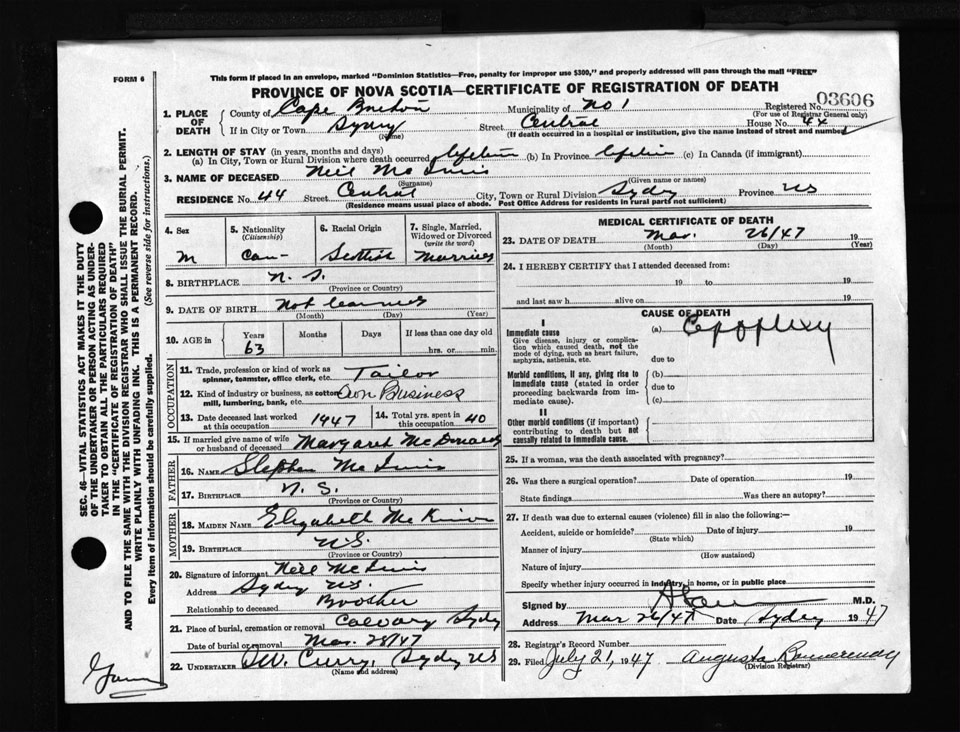 This form if placed in an envelope, marked "Dominion Statistics—Free, penalty for improper use $300," and properly addressed will pass through the mail "FREE"
FORM 6
PROVINCE OF NOVA SCOTIA—CERTIFICATE OF REGISTRATION OF DEATH
Registered No. 03606
(For use of Registrar General only)
1. PLACE OF DEATH
County of Cape Breton Municipality of No 1
If in City or Town Sydney Street Central House No. 44
(Name) (If death occurred in a hospital or institution, give the name instead of street and number)
2. LENGTH OF STAY (in years, months and days)
(a) In City, Town or Rural Division where death occurred lifetime (b) In Province lifetime (c) In Canada (if immigrant)
3. NAME OF DECEASED Neil McInnis
(Surname) (Given name or names)
RESIDENCE No. 44 Street Central City, Town or Rural Division Sydney Province NS
(Residence means usual place of abode. Post Office Address for residents in rural parts not sufficient)
4. Sex M
5. Nationality (Citizenship) Can
6. Racial Origin Scottish
7. Single, Married, Widowed or Divorced (write the word) Married
8. BIRTHPLACE N. S.
(Province or Country)
9. DATE OF BIRTH Not learned
(Month) (Day) (Year)
10. AGE in Years 63 Months Days If less than one day old
hrs. or min.
OCCUPATION
11. Trade, profession or kind of work as spinner, teamster, office clerk, etc. Tailor
12. Kind of industry or business, as cotton mill, lumbering, bank, etc. Own Business
13. Date deceased last worked at this occupation 1947
14. Total yrs. spent in this occupation 40
15. If married give name of wife or husband of deceased Margaret McDonald
FATHER
16. NAME Stephen McInnis
17. BIRTHPLACE N. S.
(Province or Country)
MOTHER
18. MAIDEN NAME Elizabeth McKinnon
19. BIRTHPLACE N.S.
(Province or Country)
20. Signature of informant Neil McInnis
Address Sydney NS.
Relationship to deceased Brother
21. Place of burial, cremation or removal Calvary Sydney
Date of burial or removal Mar. 28/47
22. UNDERTAKER W. Curry, Sydney NS
(Name and address)
MEDICAL CERTIFICATE OF DEATH
23. DATE OF DEATH Mar. 26/47 19
(Month) (Day) (Year)
24. I HEREBY CERTIFY that I attended deceased from:
19 to 19
and last saw h alive on 19
CAUSE OF DEATH
I
Immediate cause
Give disease, injury or complication which caused death, not the mode of dying, such as heart failure, asphyxia, asthenia, etc.
(a) Apoplexy
due to
Morbid conditions, if any, giving rise to immediate cause (stated in order proceeding backwards from immediate cause).
(b)
due to
(c)
II
Other morbid conditions (if important) contributing to death but not causally related to immediate cause.
25. If a woman, was the death associated with pregnancy?
26. Was there a surgical operation? Date of operation 19
State findings Was there an autopsy?
27. If death was due to external causes (violence) fill in also the following:—
Accident, suicide or homicide? Date of injury 19
(State which)
Manner of injury
(How sustained)
Nature of injury
Specify whether injury occurred in industry, in home, or in public place
Signed by M.D.
Address Mar 26/47 Date Sydney 1947
28. Registrar's Record Number
29. Filed July 21, 1947 Augusta Bannerman
(Division Registrar)
SEC. 46—VITAL STATISTICS ACT MAKES IT THE DUTY
OF THE UNDERTAKER OR PERSON ACTING AS UNDER-
TAKER TO OBTAIN ALL THE PARTICULARS REQUIRED
IN THE "CERTIFICATE OF REGISTRATION OF DEATH"
AND TO FILE THE SAME WITH THE DIVISION REGISTRAR WHO SHALL ISSUE THE BURIAL PERMIT.
WRITE PLAINLY WITH UNFADING INK. THIS IS A PERMANENT RECORD.
Every item of information should be carefully supplied. (See reverse side for instructions.)